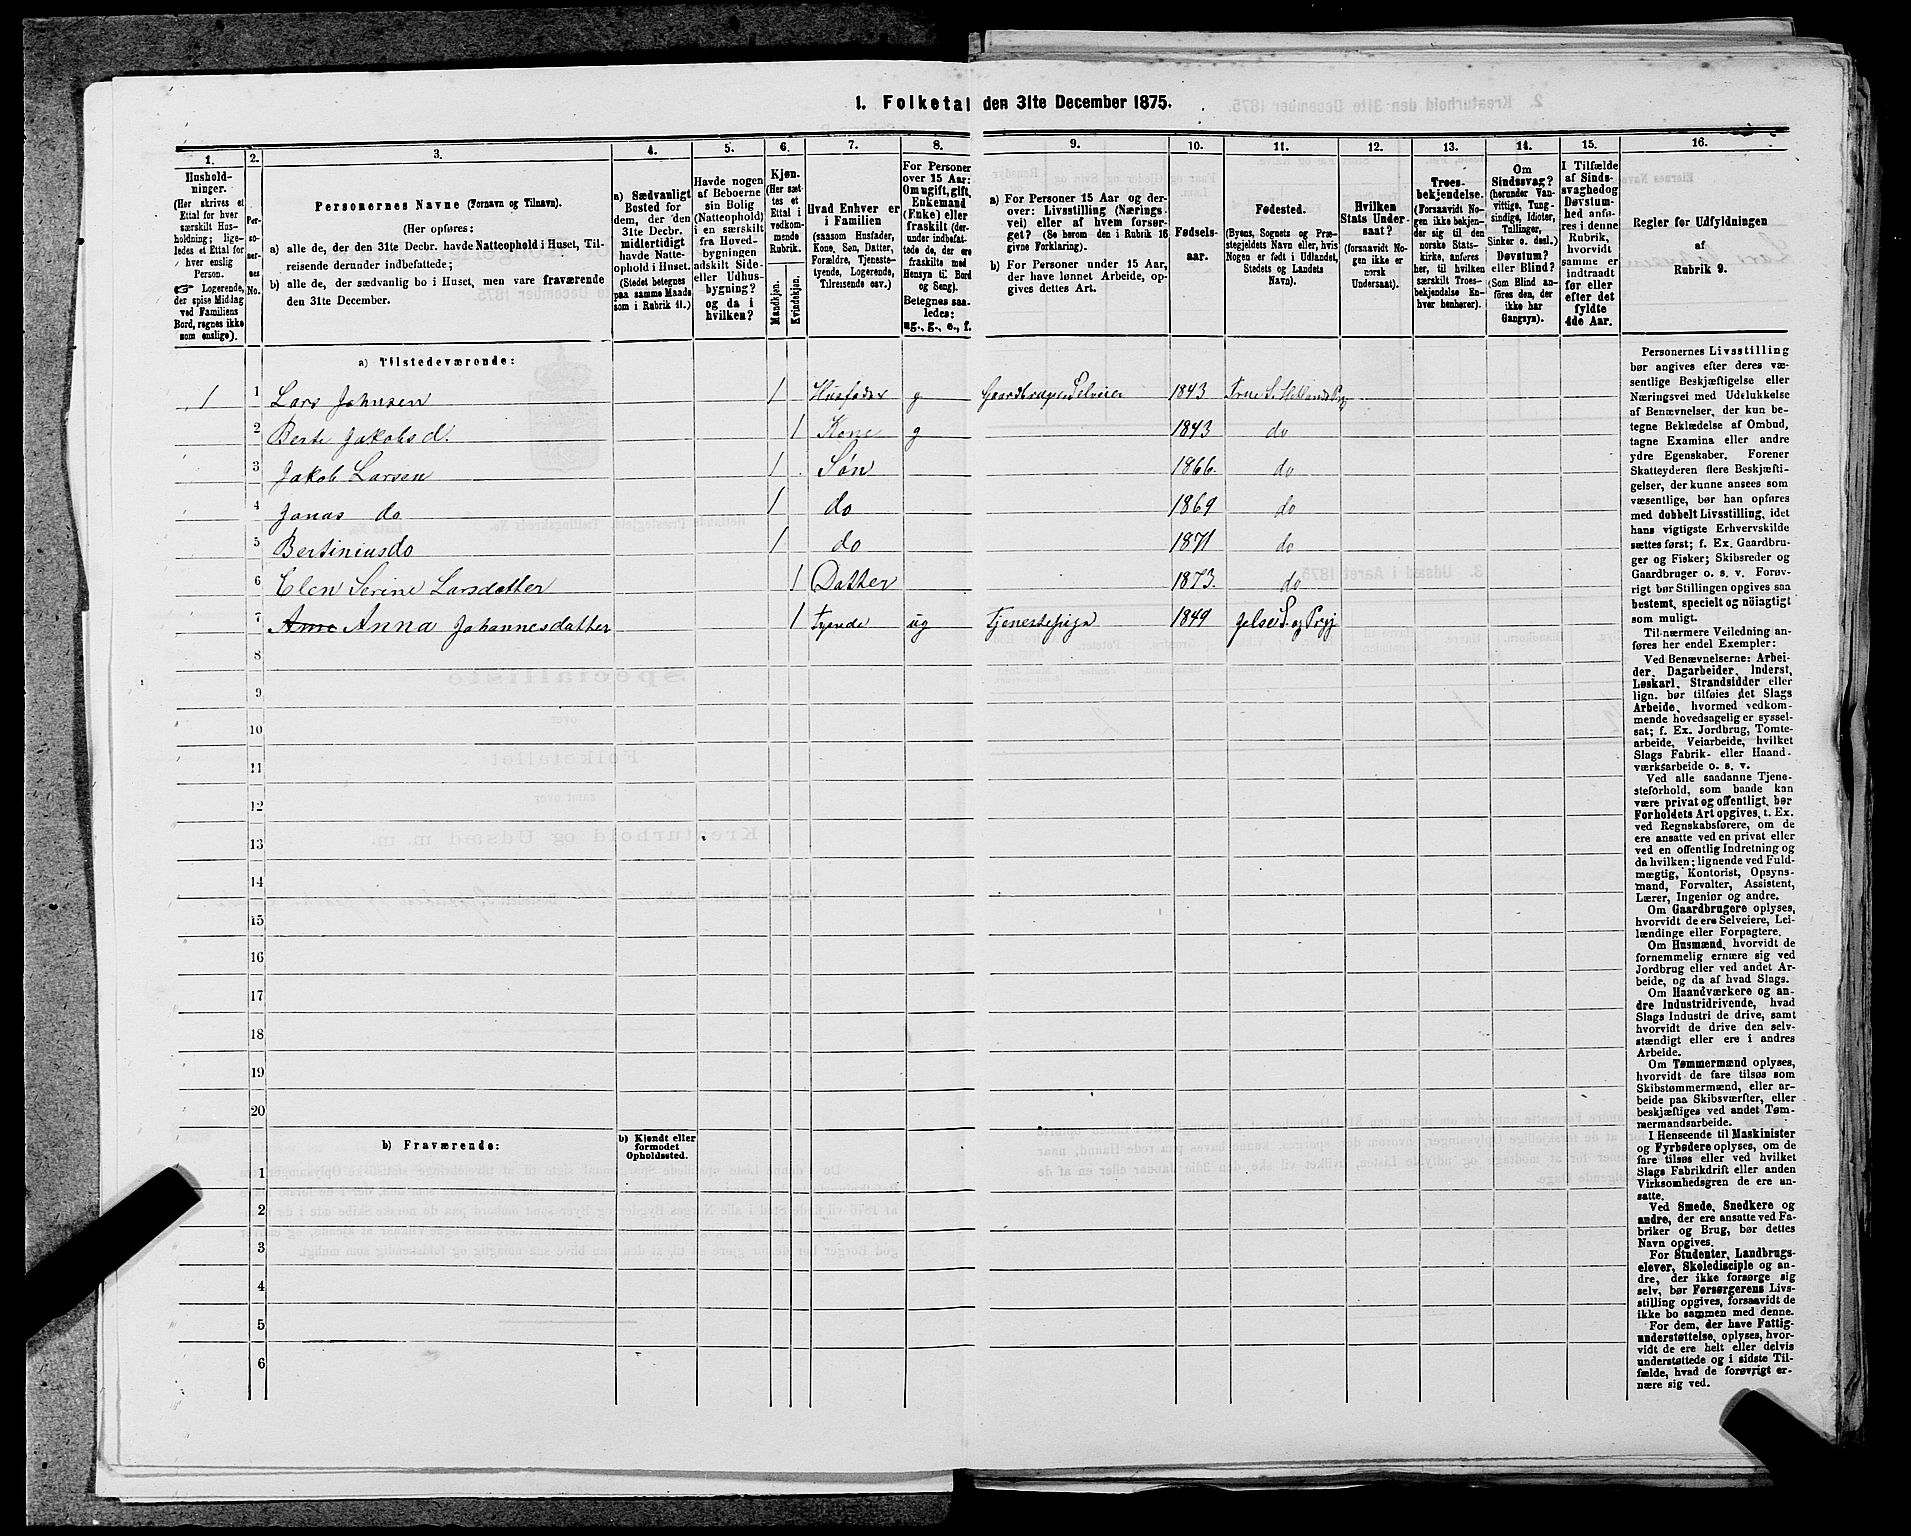 1. Folketal den 31te December 1875.
1.
Hushold-
ninger.
(Her skrives et
Ettal for hver
særskilt Hus-
holdning; lige-
ledes et Ettal for
hver enslig
Person.
☞ Logerende,
der spise Middag
ved Familiens
Bord, regnes ikke
som enslige).
2.
Per-
so-
ner-
nes
No.
3.
Personernes Navne (Fornavn og Tilnavn).
(Her opføres:
a) alle de, der den 31te Decbr. havde Natteophold i Huset, Til-
reisende derunder indbefattede;
b) alle de, der sædvanlig bo i Huset, men vare fraværende
den 31te December.
4.
a) Sædvanligt
Bosted for
dem, der den
31te Decbr.
midlertidigt
havde Natte-
ophold i Huset.
(Stedet betegnes
paa samme Maade
som i Rubrik 11.)
5.
Havde nogen
af Beboerne
sin Bolig
(Natteophold)
i en særskilt
fra Hoved-
bygningen
adskilt Side-
eller Udhus-
bygning?
og da i
hvilken?
6.
Kjøn.
(Her sæt-
tes et
Ettal i
vedkom-
mende
Rubrik.
Mandkjøn.
Kvindekjøn.
7.
Hvad Enhver er
i Familien
(saasom Husfader,
Kone, Søn, Datter,
Forældre, Tjeneste-
tyende, Logerende,
Tilreisende osv.)
8.
For Personer
over 15 Aar:
Om ugift, gift,
Enkemand
(Enke) eller
fraskilt (der-
under indbefat-
tede de, der ere
fraskilte med
Hensyn til Bord
og Seng).
Betegnes saa-
ledes:
ug., g., e., f.
9.
a) For Personer 15 Aar og der-
over: Livsstilling (Nærings-
vei) eller af hvem forsør-
get? (Se herom den i Rubrik 16
givne Forklaring).
b) For Personer under 15 Aar,
der have lønnet Arbeide, op-
gives dettes Art.
10.
Fødsels-
aar.
11.
Fødested.
(Byens, Sognets og Præ-
stegjeldets Navn eller, hvis
Nogen er født i Udlandet,
Stedets og Landets
Navn).
12.
Hvilken
Stats Under-
saat?
(forsaavidt No-
gen ikke er
norsk
Undersaat).
13.
Troes-
bekjendelse.
(Forsaavidt No-
gen ikke bekjen-
der sig til den
norske Stats-
kirke, anføres
her, til hvilken
særskilt Troes-
bekjendelse En-
hver henhører).
14.
Om
Sindssvag?
(herunder Van-
vittige, Tung-
sindige, Idioter,
Tullinger,
Sinker o. desl.)
Døvstum?
eller Blind?
(Som Blind an-
føres den, der
ikke har
Gangsyn).
15.
I Tilfælde
af Sinds-
svaghed og
Døvstum-
hed anfø-
res i denne
Rubrik,
hvorvidt
samme er
indtraadt
før eller
efter det
fyldte
4de Aar.
16.
Regler for Udfyldningen
af
Rubrik 9.
a) Tilstedeværende:
1 1 Lars Johnsen 1 Husfader g Gaardbruger Selveier 1843
2 Berte Jakobsd. 1 Kone g 1843 do
3 Jakob Larsen 1 Søn 1866 do
4 Jonas do 1 do 1869 do
5 Bertinius do 1 do 1871 do
6 Elen Serine Larsdatter 1 Datter 1873 do
7 Anna Johannesdatter 1 Tyende ug Tjenestepige 1849
8
9
10
11
12
13
14
15
16
17
18
19
20
b) Fraværende:
b) Kjendt eller
formodet
Opholdssted.
1
2
3
4
5
6
Personernes Livsstilling
bør angives efter deres væ-
sentlige Beskjæftigelse eller
Næringsvei med Udelukkelse
af Benævnelser, der kun be-
tegne Beklædelse af Ombud,
tagne Examina eller andre
ydre Egenskaber. Forener
Skatteyderen flere Beskjæfti-
gelser, der kunne ansees som
væsentlige, bør han opføres
med dobbelt Livsstilling, idet
hans vigtigste Erhvervskilde
sættes først; f. Ex. Gaardbru-
ger og Fisker; Skibsreder og
Gaardbruger o. s. v. Forøv-
rigt bør Stillingen opgives saa
bestemt, specielt og nöiagtigt
som muligt.
Til nærmere Veiledning an-
føres her endel Exempler:
Ved Benævnelserne: Arbei-
der, Dagarbeider, Inderst,
Løskarl, Strandsidder eller
lign. bør tilføies det Slags
Arbeide, hvormed vedkom-
mende hovedsagelig er syssel-
sat; f. Ex. Jordbrug, Tomte-
arbeide, Veiarbeide, hvilket
Slags Fabrik- eller Haand-
værksarbeide o. s. v.
Ved alle saadanne Tjene-
steforhold, som baade kan
være privat og offentligt, bør
Forholdets Art opgives, t. Ex.
ved Regnskabsførere, om de
ere ansatte ved en privat eller
ved en offentlig Indretning og
da hvilken; lignende ved Fuld-
mægtig, Kontorist, Opsyns-
mand, Forvalter, Assistent,
Lærer, Ingeniør og andre.
Om Gaardbrugere oplyses,
hvorvidt de ere Selveiere, Lei-
lændinge eller Forpagtere.
Om Husmænd, hvorvidt de
fornemmelig ernære sig ved
Jordbrug eller ved andet Ar-
beide, og da af hvad Slags.
Om Haandværkere og an-
dre Industridrivende, hvad
Slags Industri de drive, samt
hvorvidt de drive den selv-
stændigt eller ere i andres
Arbeide.
Om Tømmermænd oplyses,
hvorvidt de fare tilsøs som
Skibstømmermænd, eller ar-
beide paa Skibsværfter, eller
beskjæftiges ved andet Tøm-
mermandsarbeide.
I Henseende til Maskinister
og Fyrbødere oplyses, om de
fare tilsøs eller ved hvilket
Slags Fabrikdrift eller anden
Virksomhedsgren de ere an-
satte.
Ved Smede, Snedkere og
andre, der ere ansatte ved Fa-
briker og Brug, bør dettes
Navn opgives.
For Studenter, Landbrugs-
elever, Skoledisciple og an-
dre, der ikke forsørge sig
selv, bør Forsørgerens Livs-
stilling opgives, forsaavidt de
ikke bo sammen med denne.
For dem, der have Fattig-
understøttelse, oplyses, hvor-
vidt de ere helt eller delvis
understøttede og i sidste Til-
fælde, hvad de forøvrigt er-
nære sig ved.